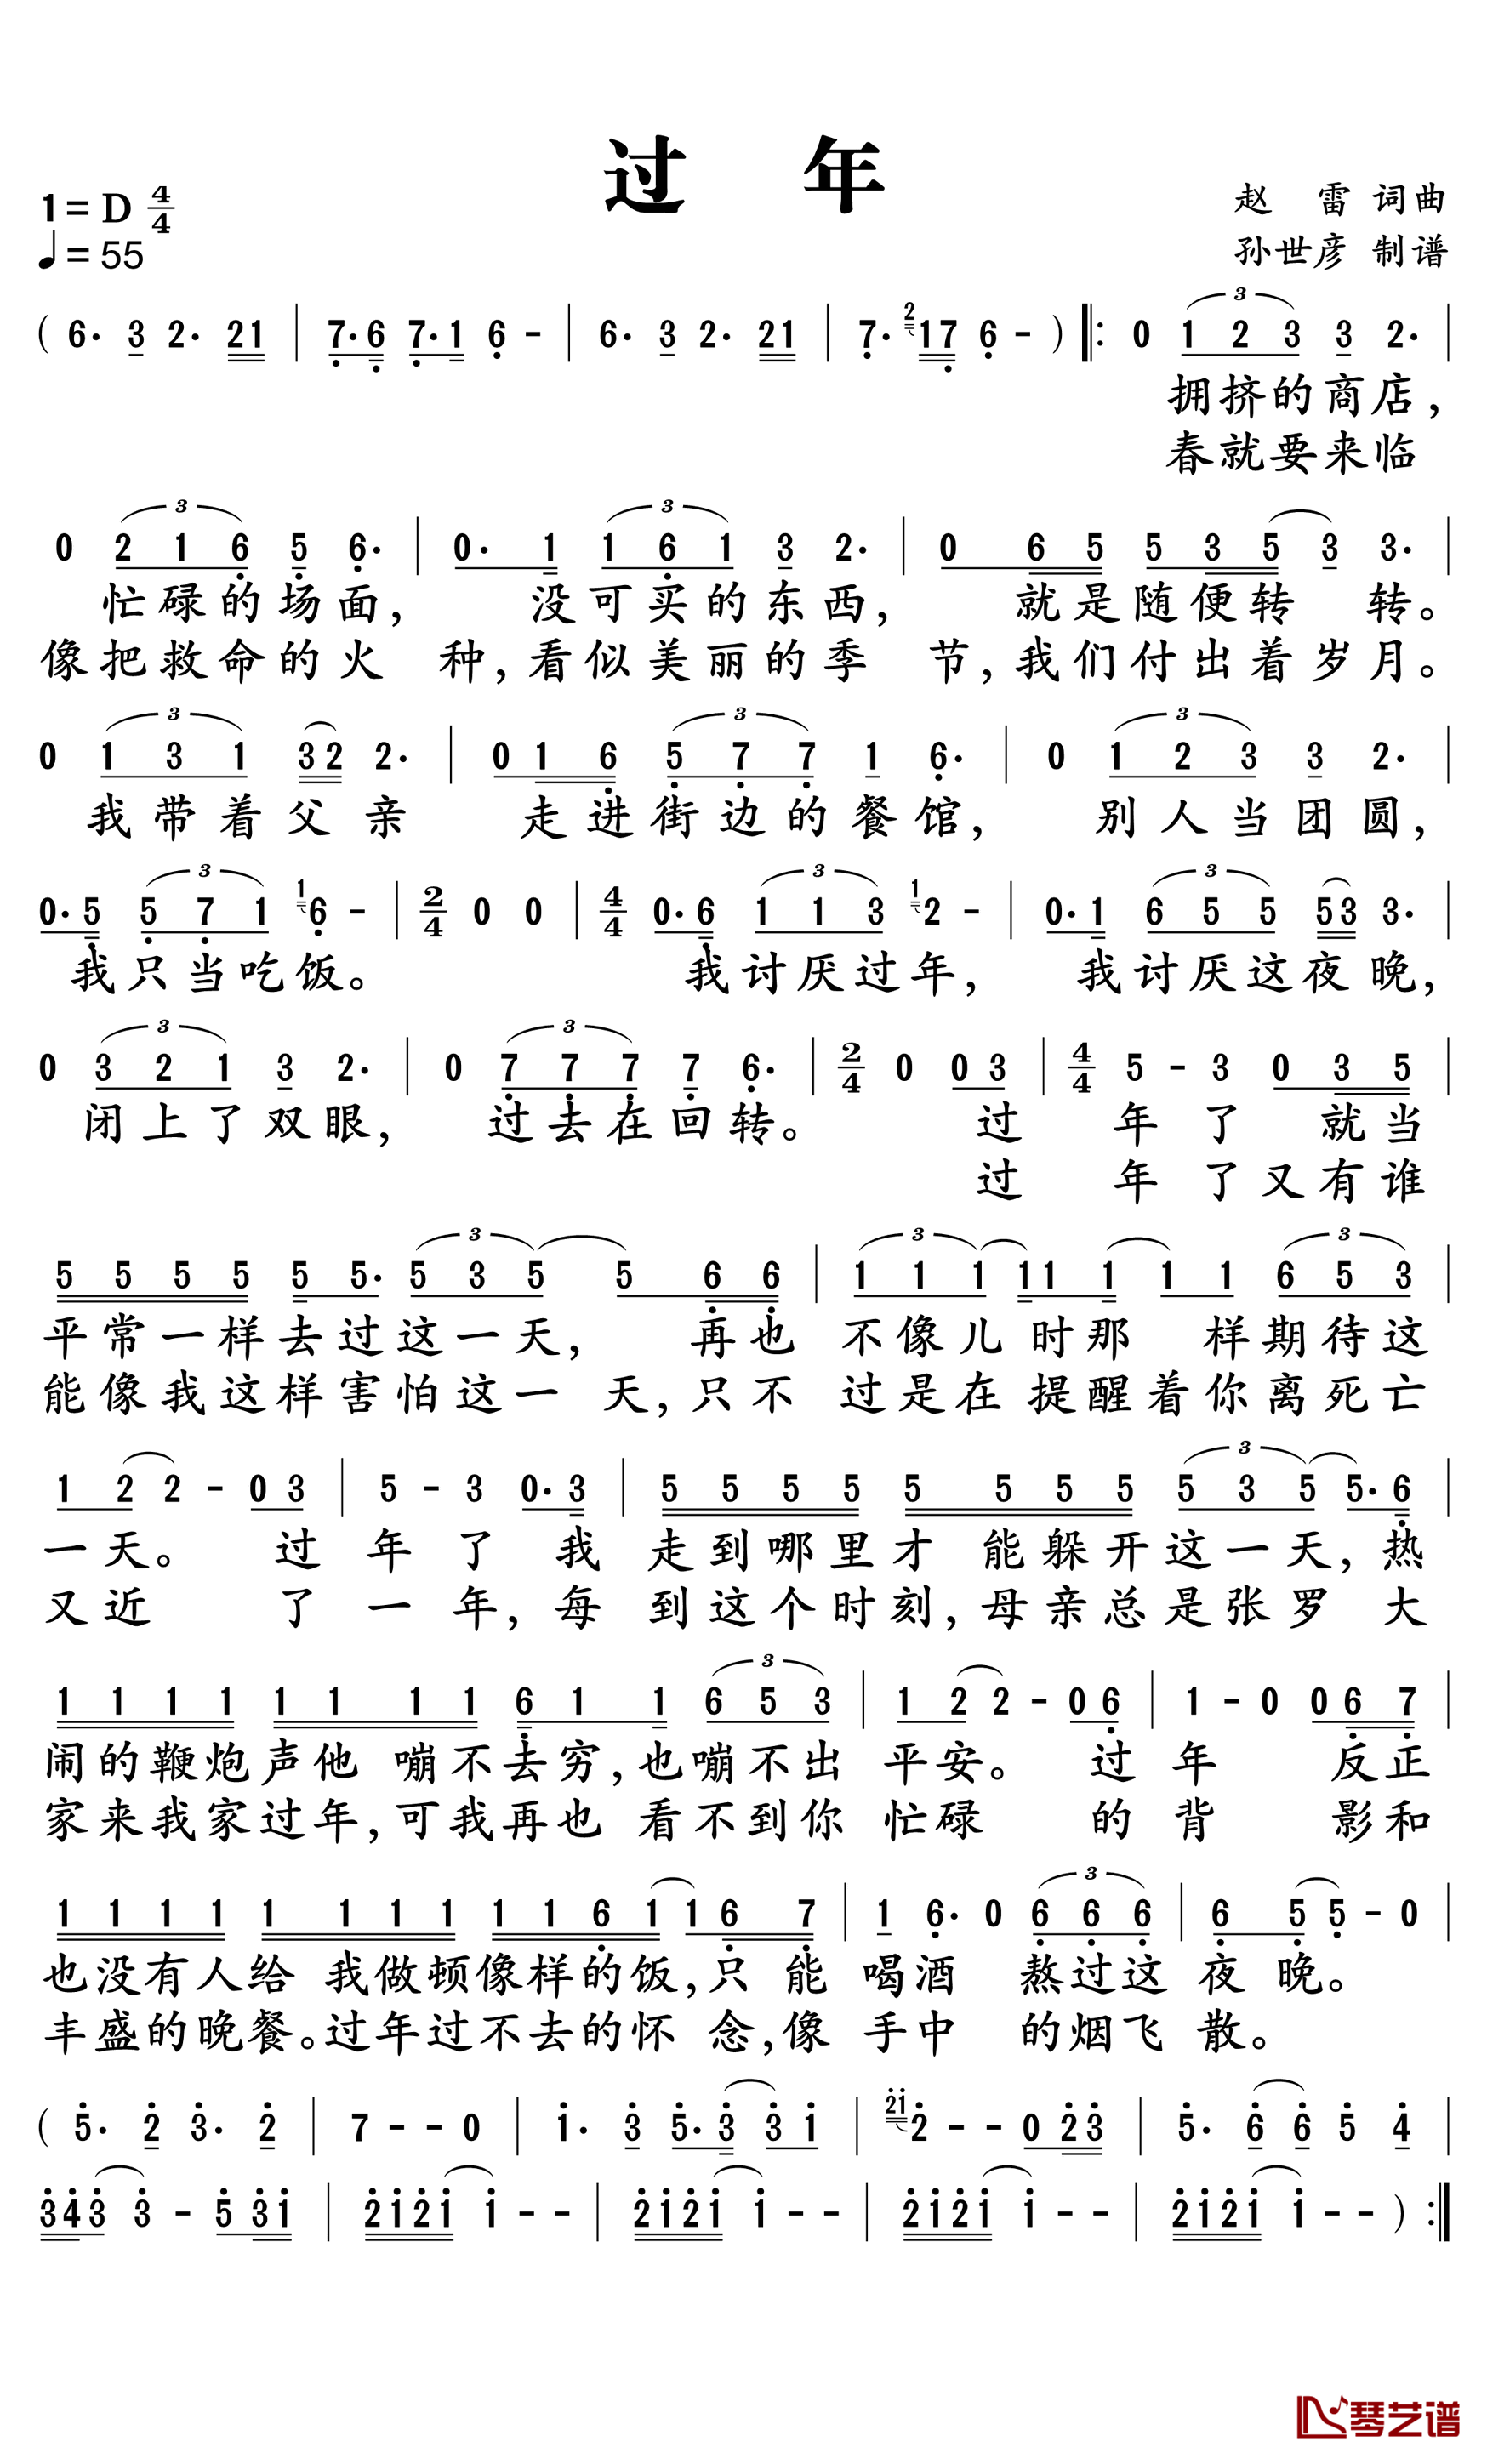 过 年
1=D 4/4
♩=55
赵 雷 词曲
孙世彦 制谱
( 6. 3 2. 21 | 7. 6 7. 1 6 - | 6. 3 2. 21 | 7. 2 17 6 - ) |: 0 3 1 2 3 3 2. |
拥挤的商店，
春就要来临
0 3 2 1 6 5 6. | 0. 1 3 1 6 1 3 2. | 0 6 5 5 3 5 3 3. |
忙碌的场面， 没可买的东西， 就是随便转 转。
像把救命的火 种，看似美丽的季 节，我们付出着岁月。
0 3 1 3 1 3 2 2. | 0 1 6 3 5 7 7 1 6. | 0 3 1 2 3 3 2. |
我带着父亲 走进街边的餐馆， 别人当团圆，
0. 5 3 5 7 1 1 6 - | 2/4 0 0 | 4/4 0. 6 3 1 1 3 1 2 - | 0. 1 3 6 5 5 5 3 3. |
我只当吃饭。 我讨厌过年， 我讨厌这夜晚，
0 3 3 2 1 3 2. | 0 3 7 7 7 7 6. | 2/4 0 0 3 | 4/4 5 - 3 0 3 5 |
闭上了双眼， 过去在回转。 过 年了 就当
过 年了又有谁
5 5 5 5 5 5. 3 5 3 5 5 6 6 | 3 1 1 1 1 1 1 1 1 3 6 5 3 |
平常一样去过这一天， 再也 不像儿时那 样期待这
能像我这样害怕这一 天，只不 过是在提醒着你离死亡
1 2 2 - 0 3 | 5 - 3 0. 3 | 5 5 5 5 5 5 5 5 3 5 3 5 5. 6 |
一天。 过 年 了 我 走到哪里才 能躲开这一天，热
又近 了 一 年，每 到这个时刻，母亲总是张罗 大
1 1 1 1 1 1 1 1 6 1 1 3 6 5 3 | 1 2 2 - 0 6 | 1 - 0 0 6 7 |
闹的鞭炮声他 嘣不去穷，也嘣不出 平安。 过 年 反正
家来我家过年，可我再也 看不到你 忙碌 的 背 影和
1 1 1 1 1 1 1 1 1 1 6 1 1 6 7 | 1 6. 0 3 6 6 6 | 6 5 5 - 0 |
也没有人给 我做顿像样的饭，只 能 喝酒 熬过这 夜 晚。
丰盛的晚餐。过年过不去的怀 念，像 手中 的烟飞 散。
( 5. 2 3. 2 | 7 - - 0 | 1. 3 5. 3 3 1 | 21 2 - - 0 2 3 | 5. 6 6 5 4 |
3 4 3 3 - 5 3 1 | 2 1 2 1 1 - - | 2 1 2 1 1 - - | 2 1 2 1 1 - - | 2 1 2 1 1 - - ) :|
琴艺谱